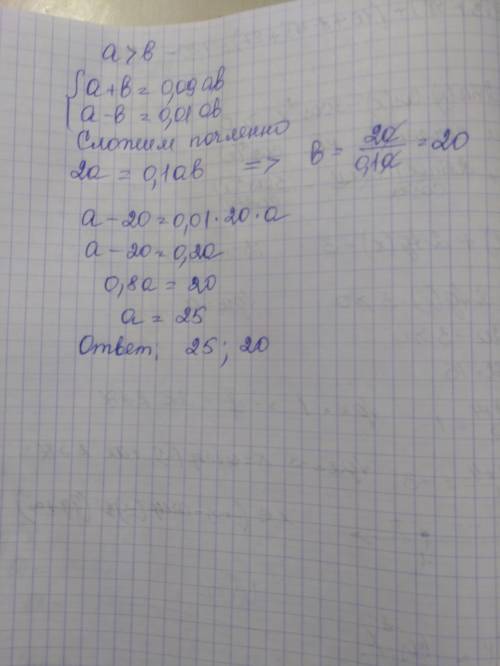 a > b
{ a + b = 0,09ab
a - b = 0,01ab
Сложим почленно
2a = 0,1ab => b = 2a/0,1a = 20
a - 20 = 0,01·20·a
a - 20 = 0,2a
0,8a = 20
a = 25
Ответ; 25; 20